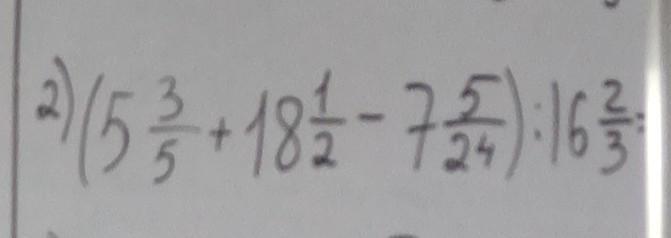 2) (5 3/5 + 18 1/2 - 7 5/24) : 16 2/3 =